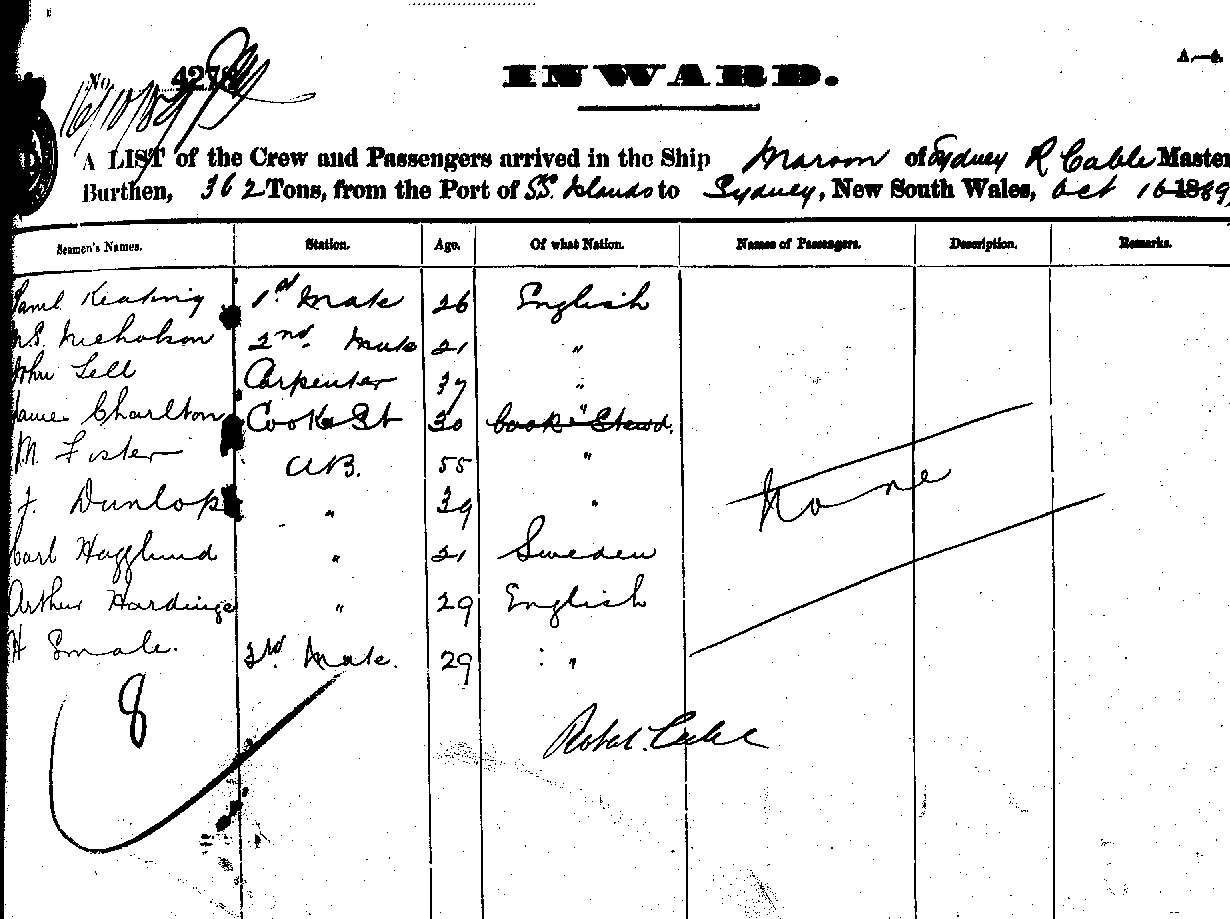 A.—4.
INWARD.
No. 427
16/10/89
A LIST of the Crew and Passengers arrived in the Ship Maroon of Sydney R Cable Master
Burthen, 362 Tons, from the Port of SS. Islands to Sydney, New South Wales, Oct 16 1889,
Seamen's Names. Station. Age. Of what Nation. Names of Passengers. Description. Remarks.
Saml. Keating 1st Mate 26 English
Nicholson 2nd. Mate 21 "
John Lell Carpenter 37 "
James Charlton Cook & St 30 " Cook & Stewd.
M. Fister A.B. 55 "
J. Dunlop " 39 "
None
Carl Hagglund " 21 Sweden
Arthur Hardinge " 29 English
H Smale. 3rd. Mate. 29 "
8
Robert. Cable